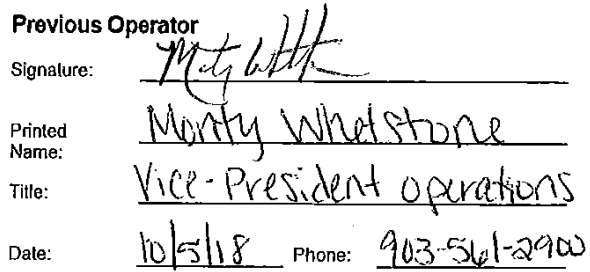 Previous Operator
Signature:
Printed Name: Monty Whetstone
Title: Vice-President operations
Date: 10/5/18 Phone: 903-561-2900